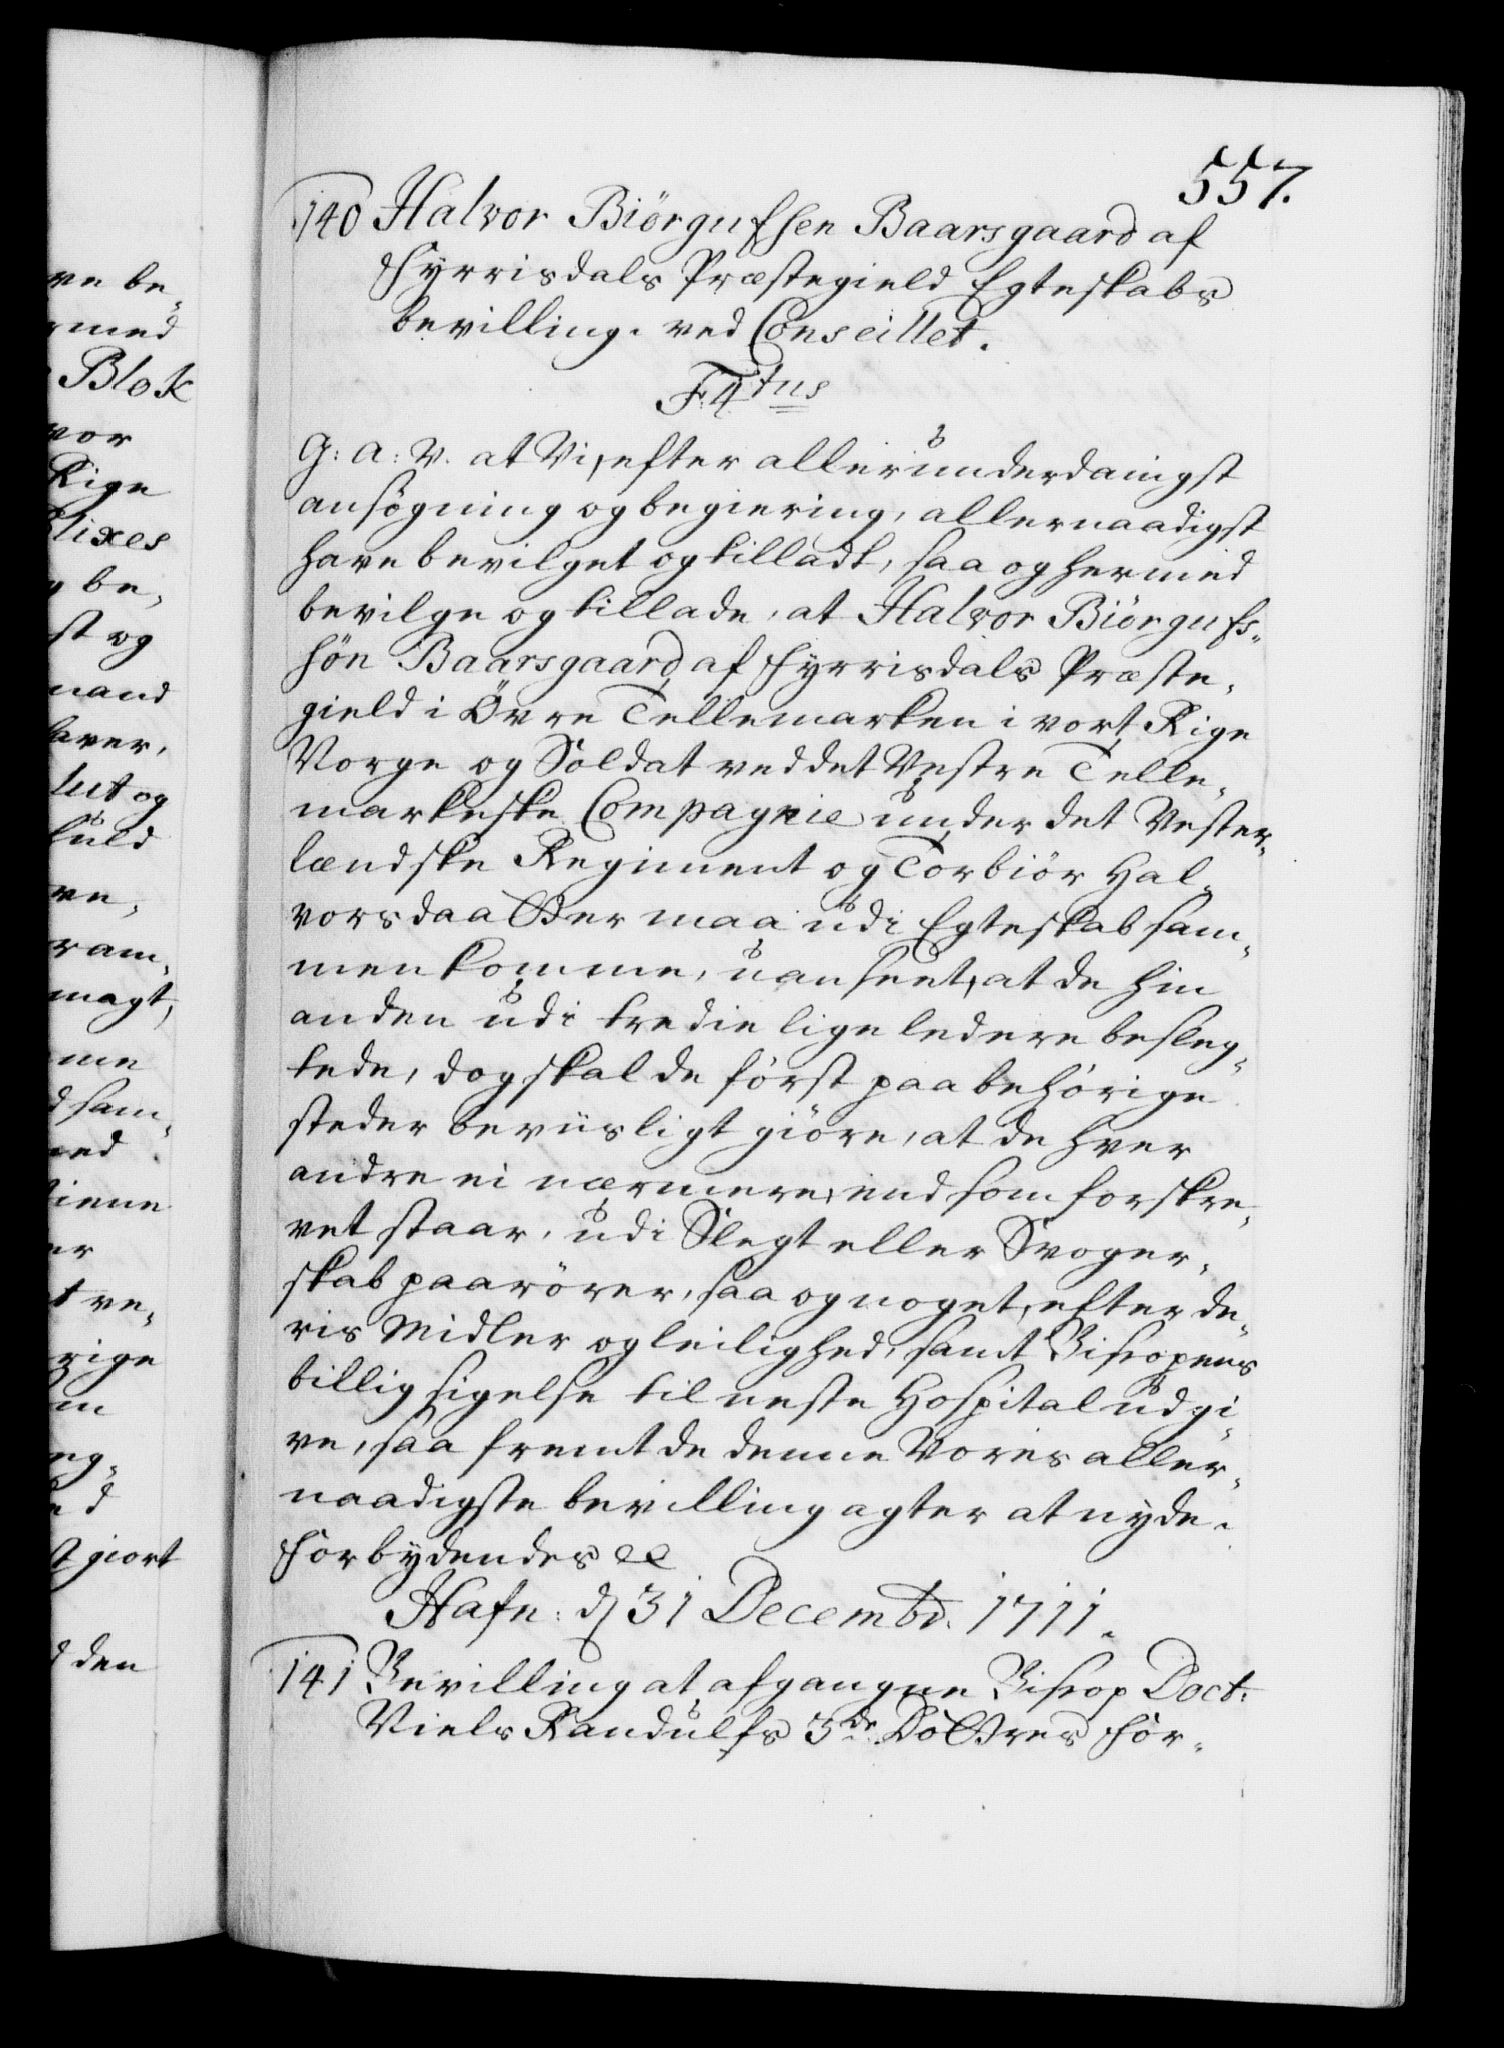 557.
140 Halvor Biörgufsen Baarsgaard af
Fyrrisdals Præstegield Egteskabs
bevilling. ved Conseillet.
F. 4tus
G: A: V. at Vi, efter allerunderdanigst
ansögning og begiering, allernaadigst
have bevilget og tilladt, saa og hermed
bevilge og tillade, at Halvor Biörgufs-
sön Baarsgaard af Fyrrisdals Præste-
gield i Övre Tellemarken i vort Rige
Norge og Soldat ved det Vestre Telle-
markeske Compagnie under det Vester-
lændske Regiment og Torbiör Hal-
vorsdaatter maa udi Egteskab sam-
men komme, uanseet, at de hin
anden udi tredie lige ledere besleg-
tede, dog skal de först paa behörige
steder beviisligt giöre, at de hver
andre ei nærmere, end som forskre-
vet staar, udi Slegt eller Svoger-
skab paarörer, saa og noget, efter de-
ris Midler og leilighed, samt Bispens
billig sigelse til neste Hospital udgi-
ve, saa fremt de denne Vores aller-
naadigste bevilling agter at nyde.
Forbydendes &c
Hafn: d 31 Decembr. 1711.
141 Bevilling at afgangne Bisop Doct:
Niels Randulfs 3de Döttres For-
ve be-
rmed
Blok
vor
Rige
Blixes
g be-
st og
mand
haver,
lut og
fuld
ve,
fram-
magt,
me
d sam-
ved
tiene
er
t ve-
rige
m
eg-
ed
t giort
d den